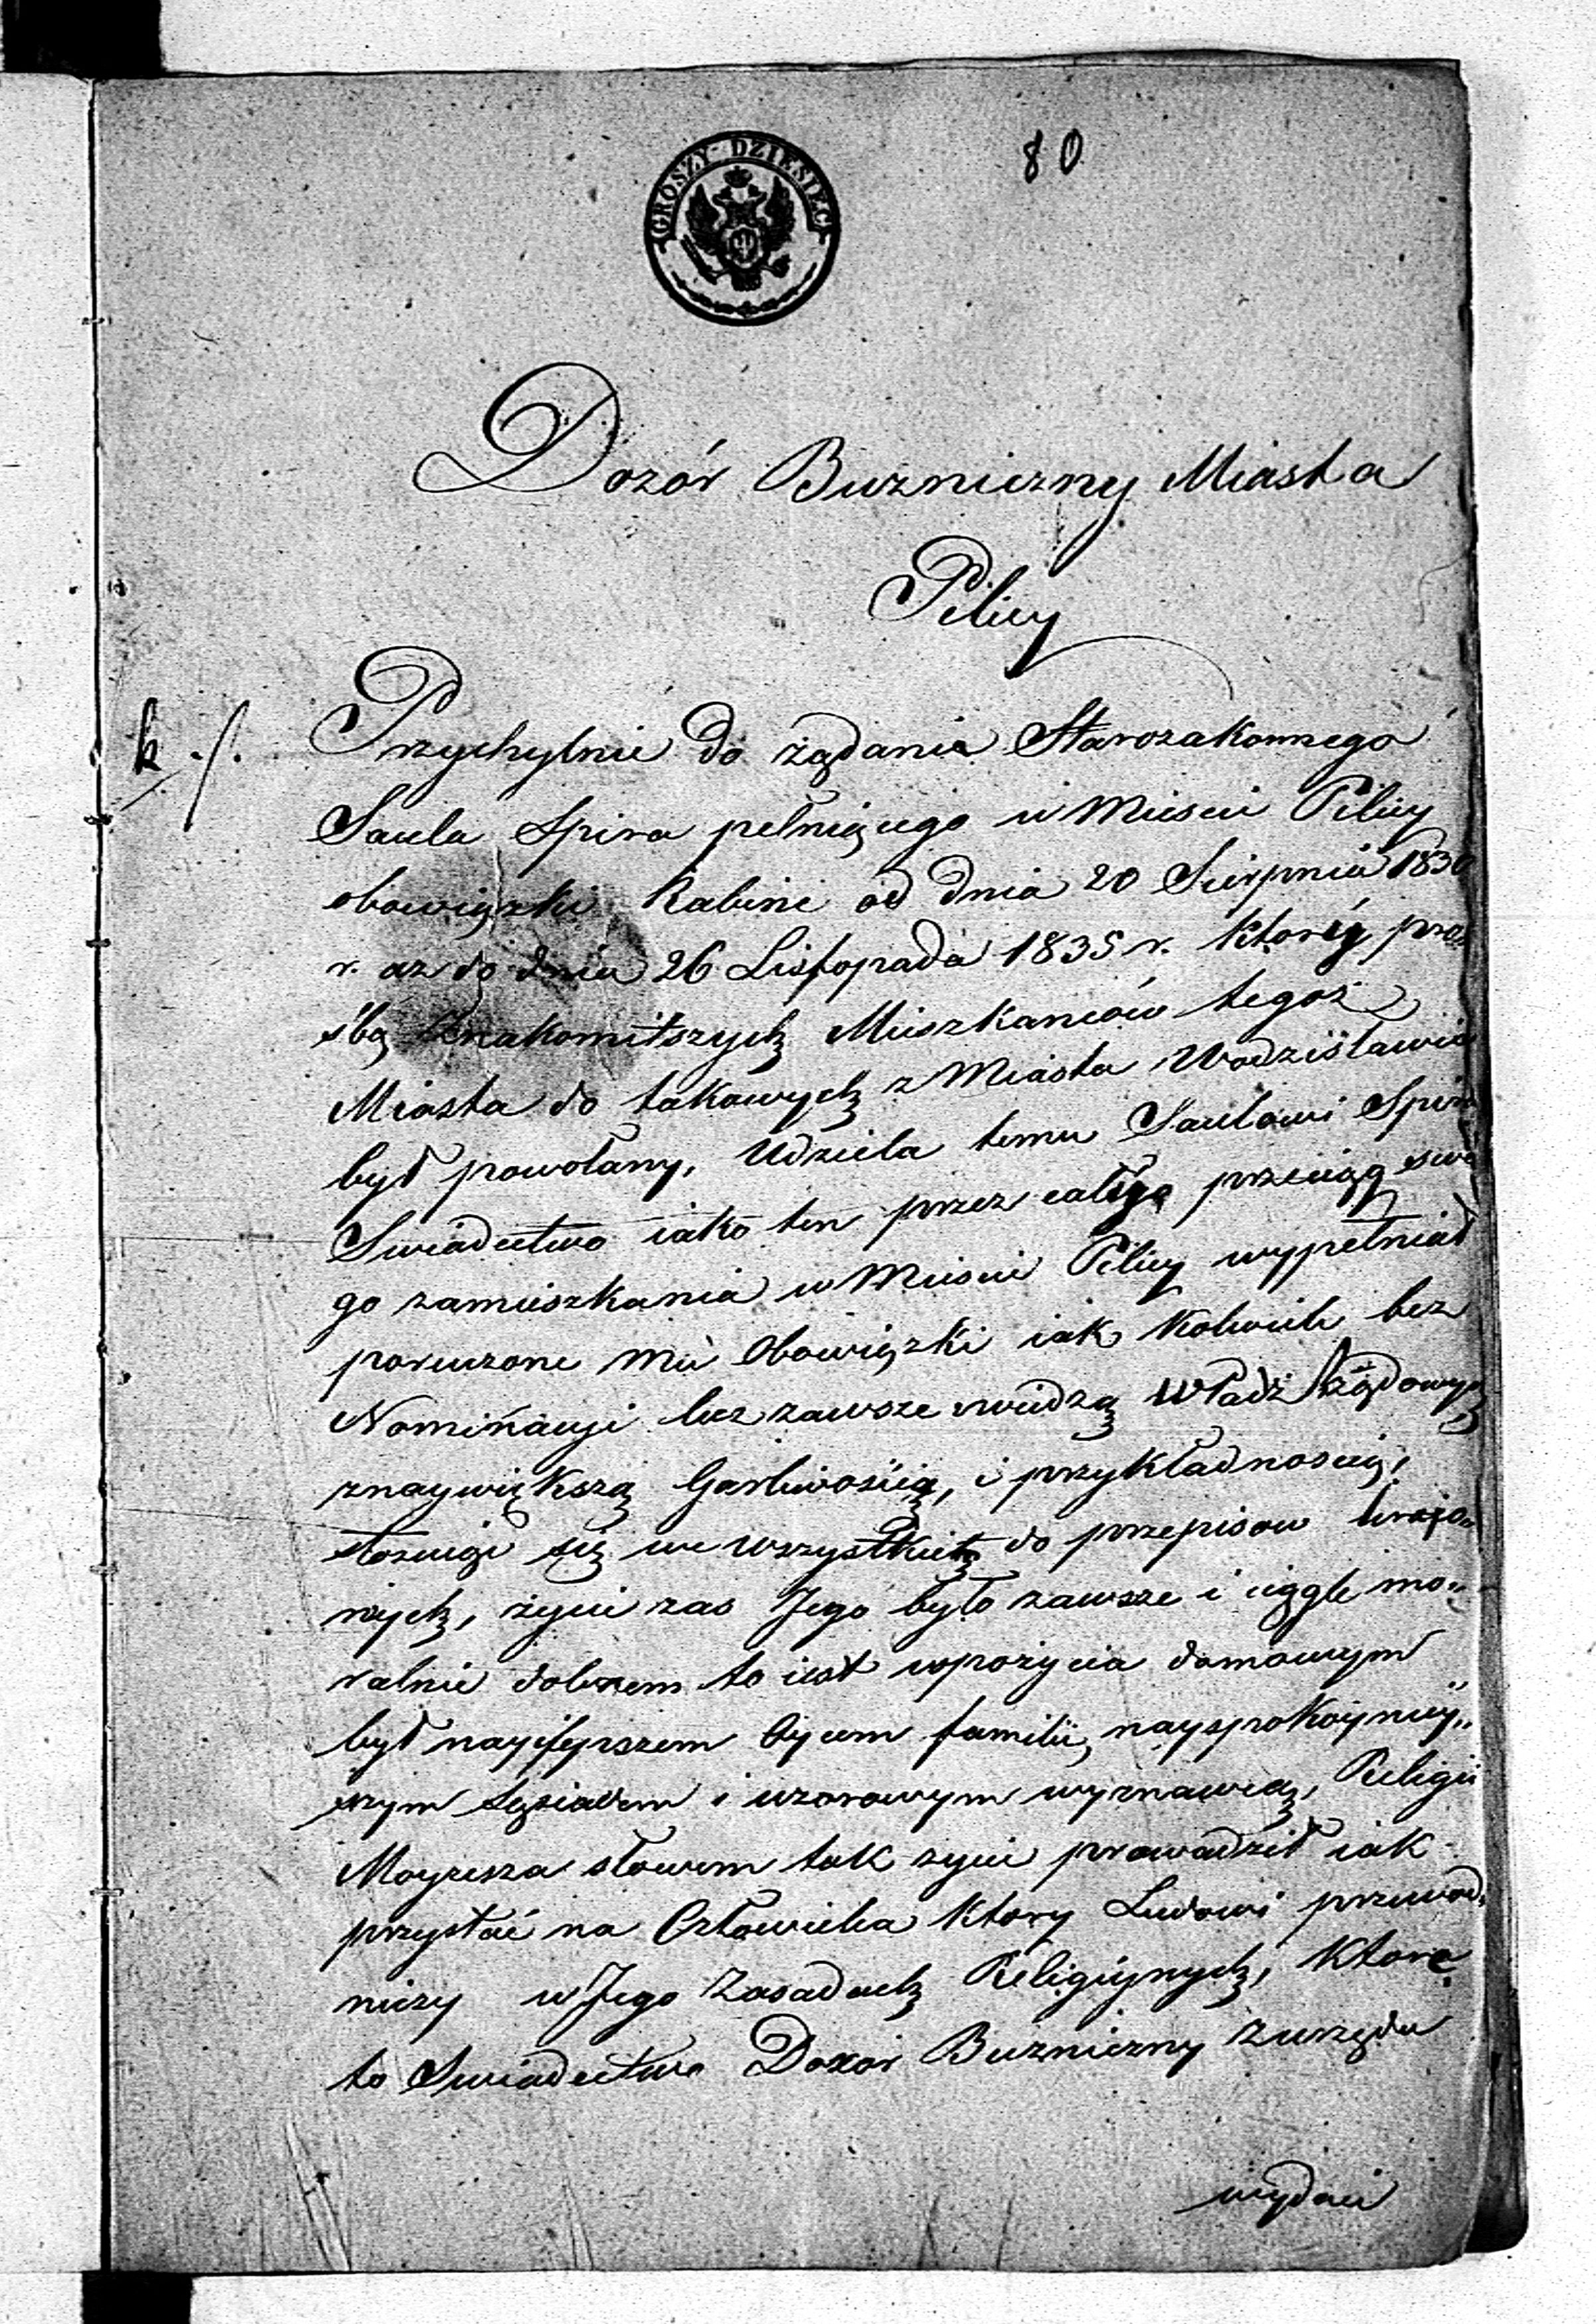 80
GROSZY DZIESIĘĆ
Dozór Buzniczny Miasta
Pilicy
Przychylnie do żądania Starozakonnego
Saula Spira pełniącego w Miescie Pilicy
obowiązki Rabina od dnia 20 Sierpnia 1830
r. az do dnia 26 Listopada 1835 r. Który proź
śbą Znakomitszych Mieszkancow tegoż
Miasta do takowych z Miasta Wodzisławia
był powołany, Udziela temu Saulowi Spira
Swiadectwo iako ten przez całego przeciąg swe
go zamieszkania w Miescie Pilicy wypełniał
poruczone mu Obowiązki iak Kolwiek bez
Nominacyi lecz zawsze wiedzą Władz Rządowych
znaywiększą Gorliwością, i przykładnoscią,
stosuiąc się we wszystkich do przepisow krajo
wych, życie zas Jego było zawsze i ciągle mo„
ralnie dobrem to iest wpożycia domowym
był naylepszem Oycem familii, nayspokoyniey„
szym sąsiadem i wzorowym wyznawcą, Religii
Moyzesza słowem tak zycie prowadził iak
przystać na Człowieka Ktory Ludowi przewod„
niczy w Jego Zasadach Religiynych, Ktore
to Swiadectwo Dozor Buzniczny zurzędu
wydaie